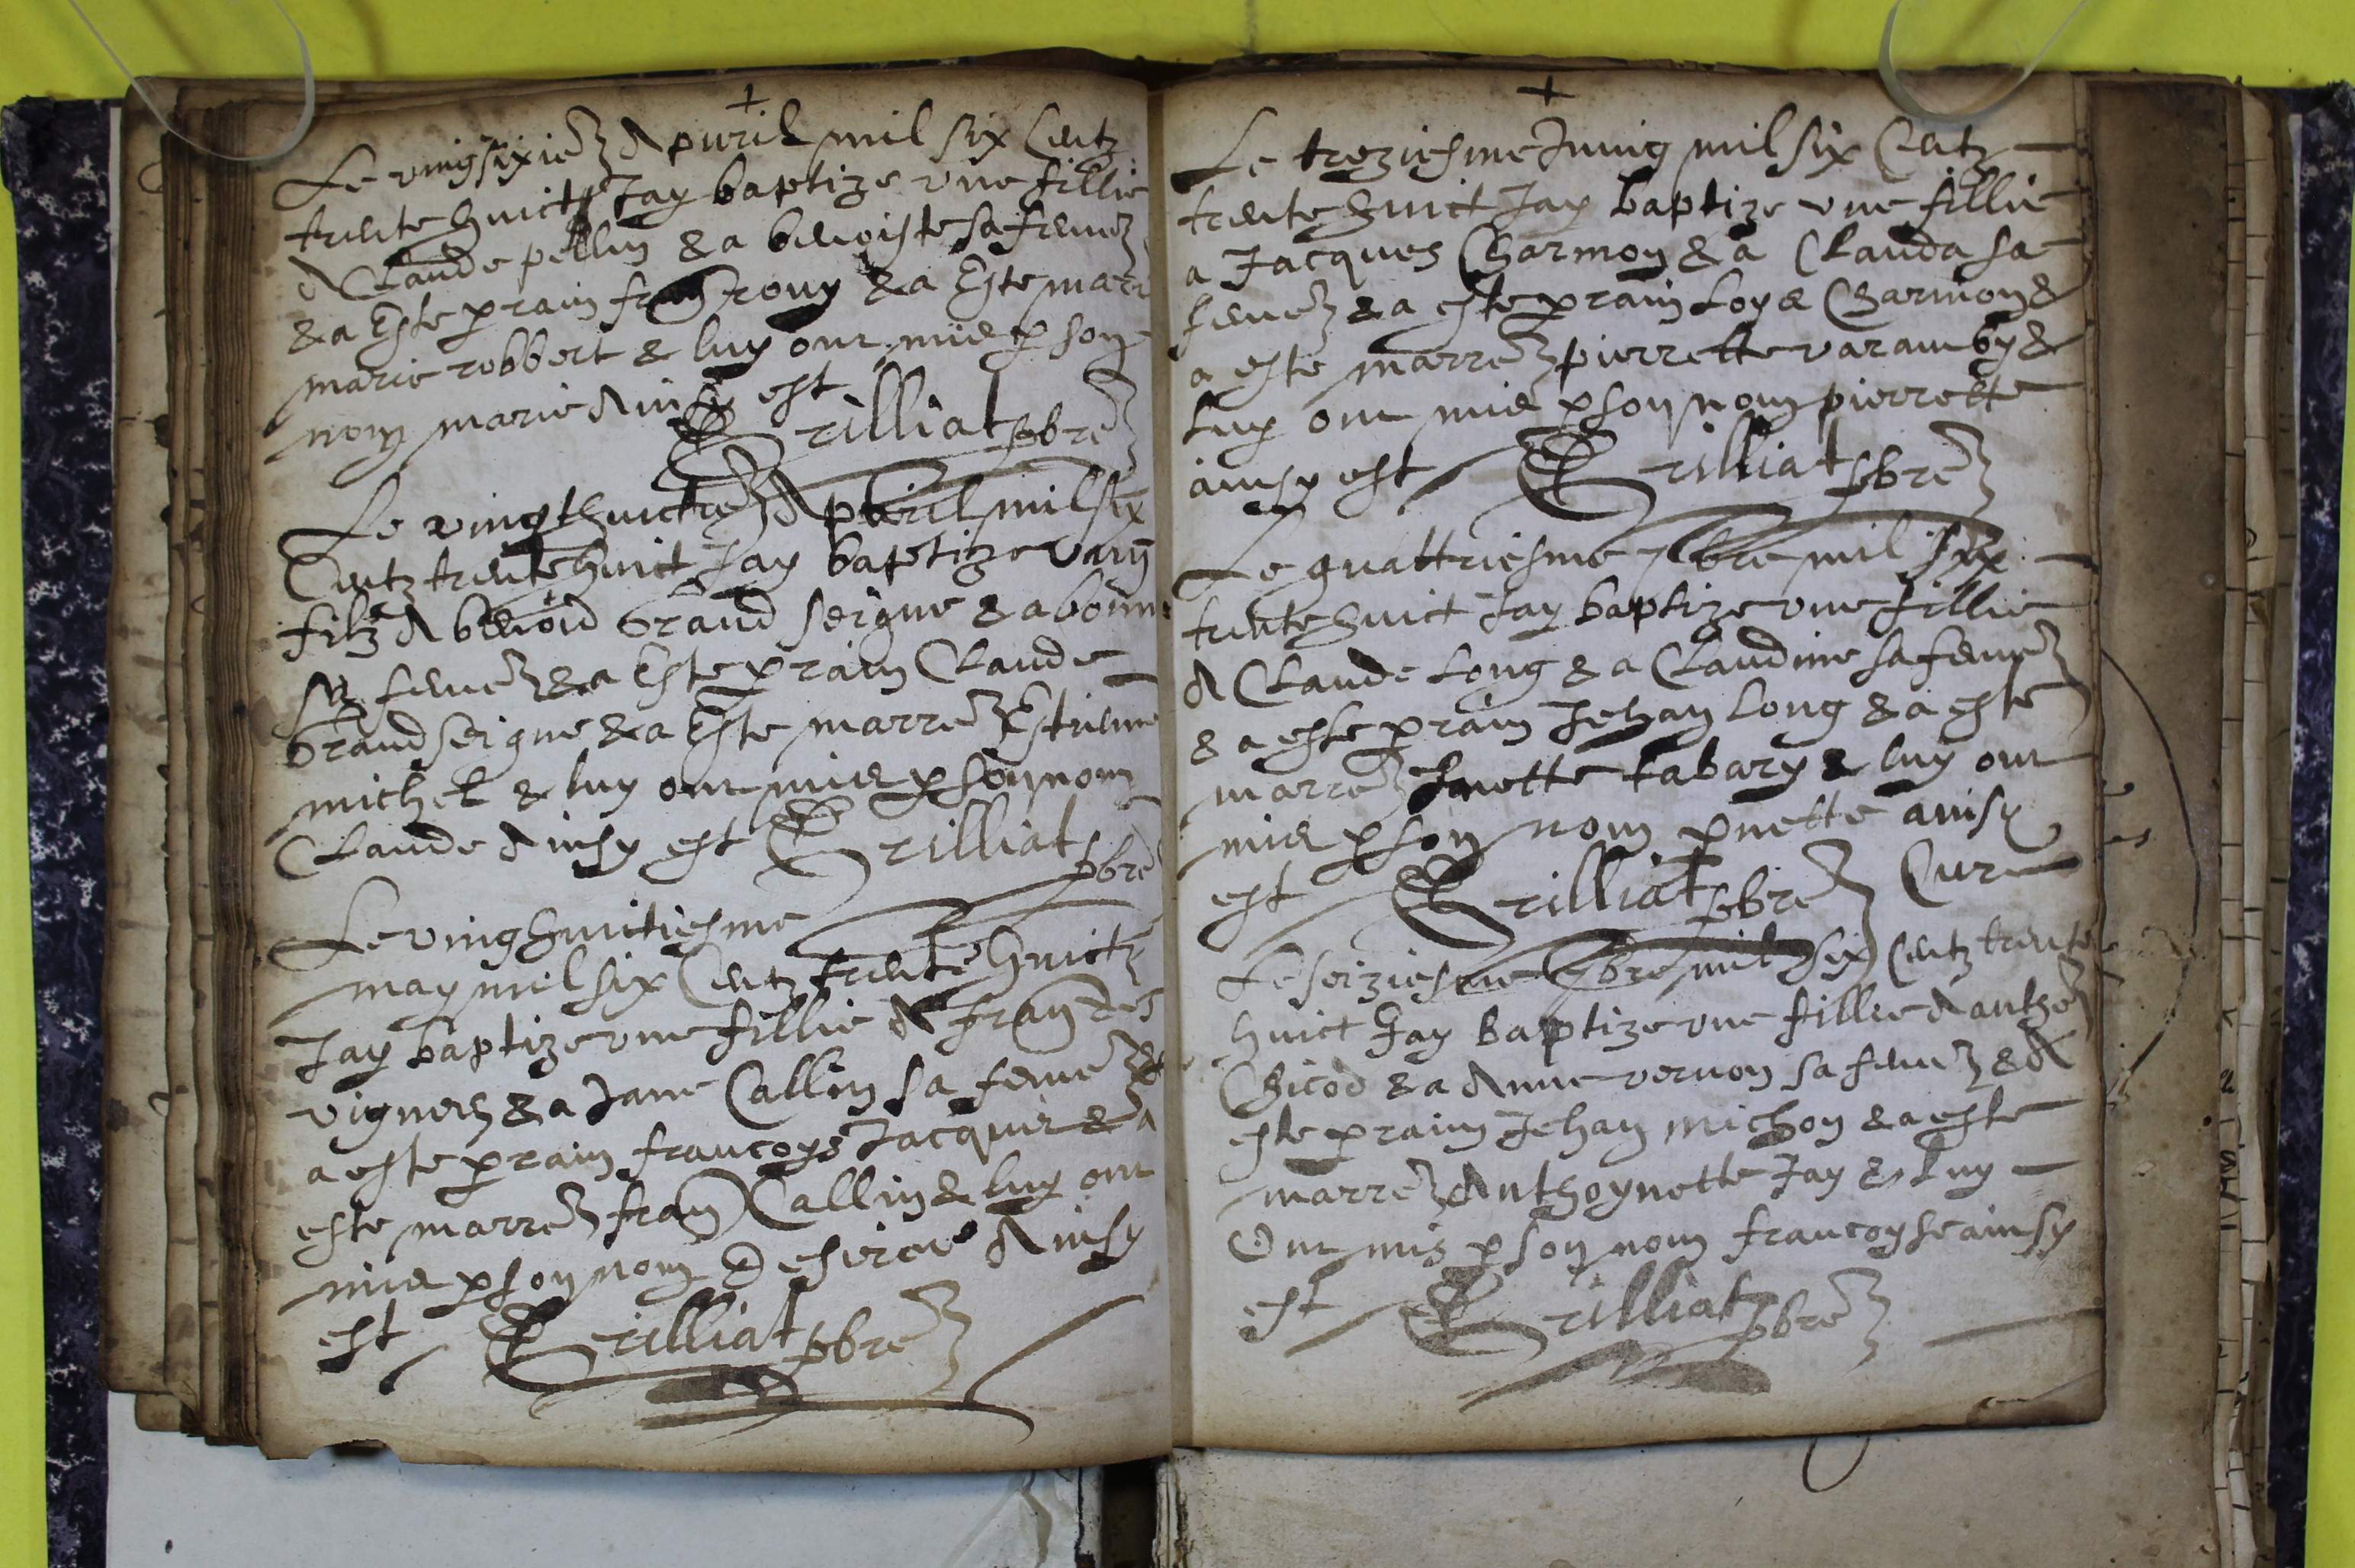 Le vingsixie Apvril mil six Centz
trente huictz Jay baptize une fillie
A Claude pellin & a benoiste sa feme
& a Este prain & a Este marr
marie robbert & luy ont mis p son
nom marie Ainsi est
Trilliat pbre
Le vingthuictie Apvril mil six
Centz trente huict Jay baptize ung
filz A benoid Grand seigne & a
sa feme & a Este prain Claude
Grand seigne & a Este marre Estienne
michel & luy ont mis p son nom
Claude Ainsy est Trilliat
pbre
Le vinghuitiesme
may mil six Centz trente huictz
Jay baptize une fillie A
vigner & a Jane Callin sa feme &
a este prain francoys Jacquier & a
este marre fran Callin & luy ont
mis p son nom Ainsy
est Trilliat pbre
Le treziesme Juing mil six Centz
trente huict Jay baptize une fillie
a Jacques Charmon & a Clauda sa
feme & a este prain Loys Charmon &
a este marre pierrette varamby &
luy ont mis p son nom pierrette
ainsy est Trilliat pbre
Le quattriesme 7bre mil six
trente huict Jay baptize une fillie
A Claude Long & a Claudine sa feme
& a este prain Jehan Long & a este
marre tabary & luy ont
mis p son nom pnette ainsy
est Trilliat pbre Cure
Le seiziesme mil six Centz trente
huict Jay baptize une fillie A anthe
Chicod & a Anne vernon sa feme & A
este prain Jehan michon & a este
marre Anthoynette Jay & luy
Ont mis p son nom francoyse ainsy
est Trilliat pbre